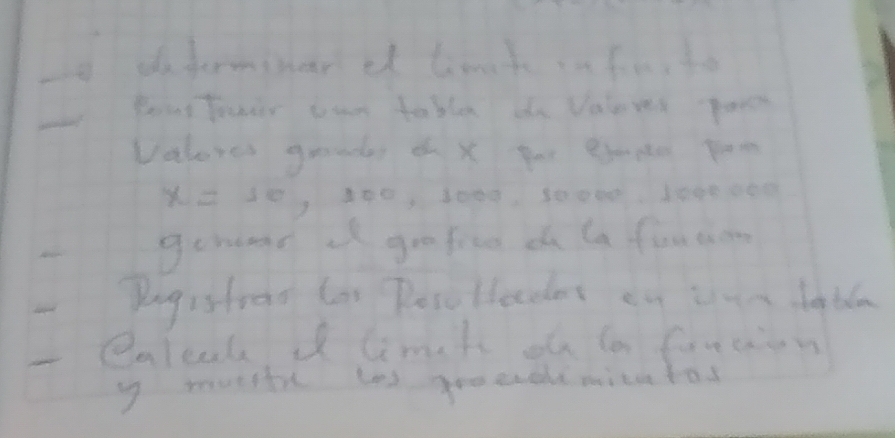 determinar el limite infinito
Construir una tabla de Valores para
Valores grandes de x por Ejemplo para
x = 10, 100, 1000, 10000, 1000000
- generar el grafico de la funcion
- Registrar los Resultados en una tabla
- Calcule el limite de la funcion
y muestre los procedimientos